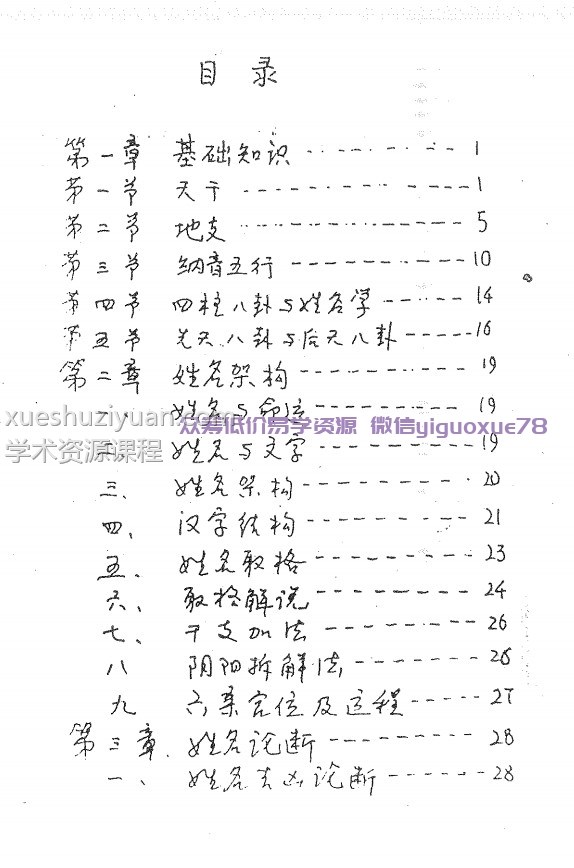 目 录
第一章 基础知识 ------- 1
第一节 天干 --------- 1
第二节 地支 --------- 5
第三节 纳音五行 -------- 10
第四节 四柱八卦与姓名学 ----- 14
第五节 先天八卦与后天八卦 ----- 16
第二章 姓名架构 ------- 19
一、 姓名与命运 ------- 19
众筹低价易学资源 微信yiguoxue78
xueshuziyuan.com
学术资源课程
二、 姓名与文字 ------- 19
三、 姓名架构 -------- 20
四、 汉字结构 -------- 21
五、 姓名取格 -------- 23
六、 取格解说 -------- 24
七、 干支加法 -------- 26
八 阴阳拆解法 ------- 26
九 六亲定位及运程 ----- 27
第三章、姓名论断 ------- 28
一、 姓名吉凶论断 ------ 28